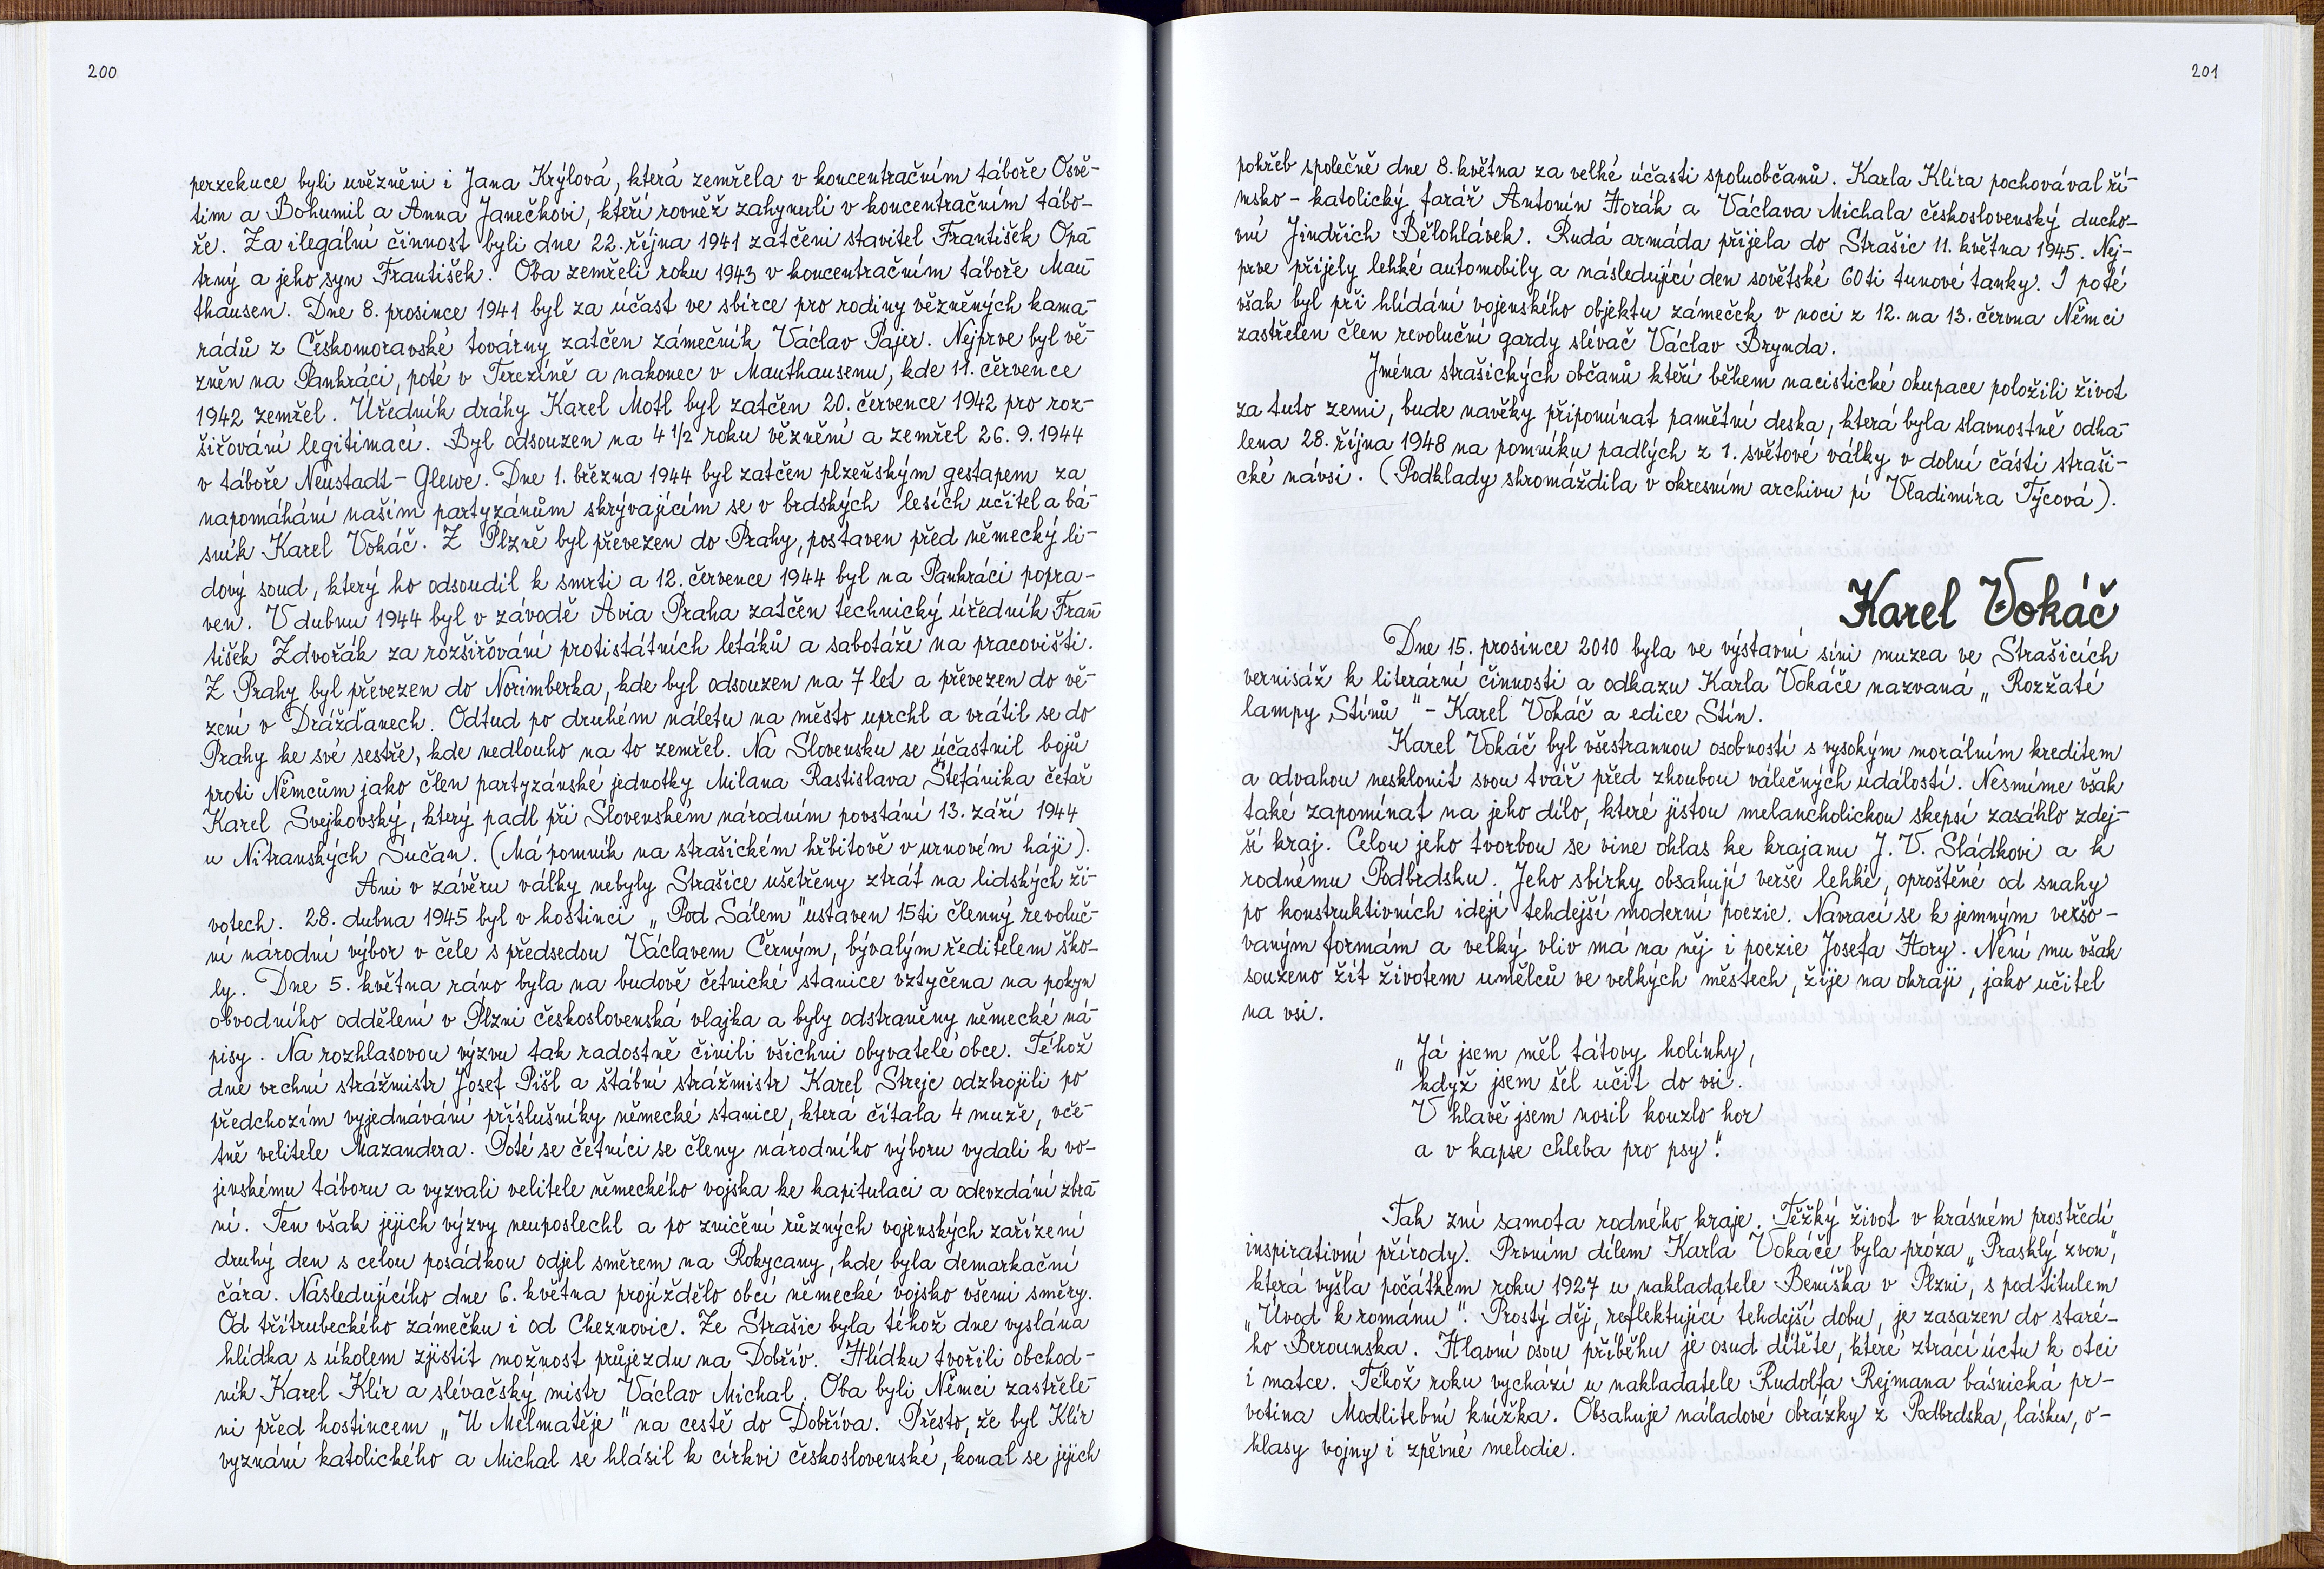 200
perzekuce byli uvězněni i Jana Krýlová, která zemřela v koncentračním táboře Osvě-
tim a Bohumil a Anna Janečkovi, kteří rovněž zahynuli v koncentračním tábo-
ře. Za ilegální činnost byli dne 22. října 1941 zatčeni stavitel František Opa-
trný a jeho syn František. Oba zemřeli roku 1943 v koncentračním táboře Mau-
thausen. Dne 8. prosince 1941 byl za účast ve sbírce pro rodiny vězněných kama-
rádů z Českomoravské továrny zatčen zámečník Václav Pajer. Nejprve byl vě-
zněn na Pankráci, poté v Terezíně a nakonec v Mauthausenu, kde 11. července
1942 zemřel. Úředník dráhy Karel Motl byl zatčen 20. července 1942 pro roz-
šiřování legitimací. Byl odsouzen na 4 1/2 roku věznění a zemřel 26. 9. 1944
v táboře Neustadt - Glewe. Dne 1. března 1944 byl zatčen plzeňským gestapem za
napomáhání našim partyzánům skrývajícím se v brdských lesích učitel a bá-
sník Karel Vokáč. Z Plzně byl převezen do Prahy, postaven před německý li-
dový soud, který ho odsoudil k smrti a 12. července 1944 byl na Pankráci popra-
ven. V dubnu 1944 byl v závodě Avia Praha zatčen technický úředník Fran-
tišek Zdvořák za rozšiřování protistátních letáků a sabotáže na pracovišti.
Z Prahy byl převezen do Norimberka, kde byl odsouzen na 7 let a převezen do vě-
zení v Drážďanech. Odtud po druhém náletu na město uprchl a vrátil se do
Prahy ke své sestře, kde nedlouho na to zemřel. Na Slovensku se účastnil bojů
proti Němcům jako člen partyzánské jednotky Milana Rastislava Štefánika četař
Karel Svejkovský, který padl při Slovenském národním povstání 13. září 1944
u Nitranských Sučan. (Má pomník na strašickém hřbitově v urnovém háji).
Ani v závěru války nebyly Strašice ušetřeny ztrát na lidských ži-
votech. 28. dubna 1945 byl v hostinci „Pod Sálem" ustaven 15ti členný revoluč-
ní národní výbor v čele s předsedou Václavem Černým, bývalým ředitelem ško-
ly. Dne 5. května ráno byla na budově četnické stanice vztyčena na pokyn
obvodního oddělení v Plzni československá vlajka a byly odstraněny německé ná-
pisy. Na rozhlasovou výzvu tak radostně činili všichni obyvatelé obce. Téhož
dne vrchní strážmistr Josef Pišl a štábní strážmistr Karel Strejc odzbrojili po
předchozím vyjednávání příslušníky německé stanice, která čítala 4 muže, vče-
tně velitele Mazandera. Poté se četníci se členy národního výboru vydali k vo-
jenskému táboru a vyzvali velitele německého vojska ke kapitulaci a odevzdání zbra-
ní. Ten však jejich výzvy neuposlechl a po zničení různých vojenských zařízení
druhý den s celou posádkou odjel směrem na Rokycany, kde byla demarkační
čára. Následujícího dne 6. května projíždělo obcí německé vojsko všemi směry.
Od třítrubeckého zámečku i od Cheznovic. Ze Strašic byla téhož dne vyslána
hlídka s úkolem zjistit možnost průjezdu na Dobřív. Hlídku tvořili obchod-
ník Karel Klír a slévačský mistr Václav Michal. Oba byli Němci zastřele-
ni před hostincem „U Melmatěje" na cestě do Dobříva. Přesto, že byl Klír
vyznání katolického a Michal se hlásil k církvi československé, konal se jejich
201
pohřeb společně dne 8. května za velké účasti spoluobčanů. Karla Klíra pochovával ří-
msko - katolický farář Antonín Horák a Václava Michala československý ducho-
vní Jindřich Bělohlávek. Rudá armáda přijela do Strašic 11. května 1945. Nej-
prve přijely lehké automobily a následující den sovětské 60ti tunové tanky. I poté
však byl při hlídání vojenského objektu zámeček v noci z 12. na 13. června Němci
zastřelen člen revoluční gardy slévač Václav Brynda.
Jména strašických občanů kteří během nacistické okupace položili život
za tuto zemi, bude navěky připomínat pamětní deska, která byla slavnostně odha-
lena 28. října 1948 na pomníku padlých z 1. světové války v dolní části straši-
cké návsi. (Podklady shromáždila v okresním archivu pí Vladimíra Týcová).
Karel Vokáč
Dne 15. prosince 2010 byla ve výstavní síni muzea ve Strašicích
vernisáž k literární činnosti a odkazu Karla Vokáče nazvaná „Rozžaté
lampy Stínů" - Karel Vokáč a edice Stín.
Karel Vokáč byl všestrannou osobností s vysokým morálním kreditem
a odvahou nesklonit svou tvář před zhoubou válečných událostí. Nesmíme však
také zapomínat na jeho dílo, které jistou melancholickou skepsí zasáhlo zdej-
ší kraj. Celou jeho tvorbou se vine ohlas ke krajanu J. V. Sládkovi a k
rodnému Podbrdsku. Jeho sbírky obsahují verše lehké, oproštěné od snahy
po konstruktivních idejí tehdejší moderní poezie. Navrací se k jemným veršo-
vaným formám a velký vliv má na něj i poezie Josefa Hory. Není mu však
souzeno žít životem umělců ve velkých městech, žije na okraji, jako učitel
na vsi.
„Já jsem měl tátovy holínky,
když jsem šel učit do vsi.
V hlavě jsem nosil kouzlo hor
a v kapse chleba pro psy."
Tak zní samota rodného kraje. Těžký život v krásném prostředí
inspirativní přírody. Prvním dílem Karla Vokáče byla próza „Prasklý zvon",
která vyšla počátkem roku 1927 u nakladatele Beníška v Plzni, s podtitulem
„Úvod k románu". Prostý děj, reflektující tehdejší dobu, je zasazen do staré-
ho Berounska. Hlavní osou příběhu je osud dítěte, které ztrácí úctu k otci
i matce. Téhož roku vychází u nakladatele Rudolfa Rejmana básnická pr-
votina Modlitební knížka. Obsahuje náladové obrázky z Podbrdska, lásku, o-
hlasy vojny i zpěvné melodie.